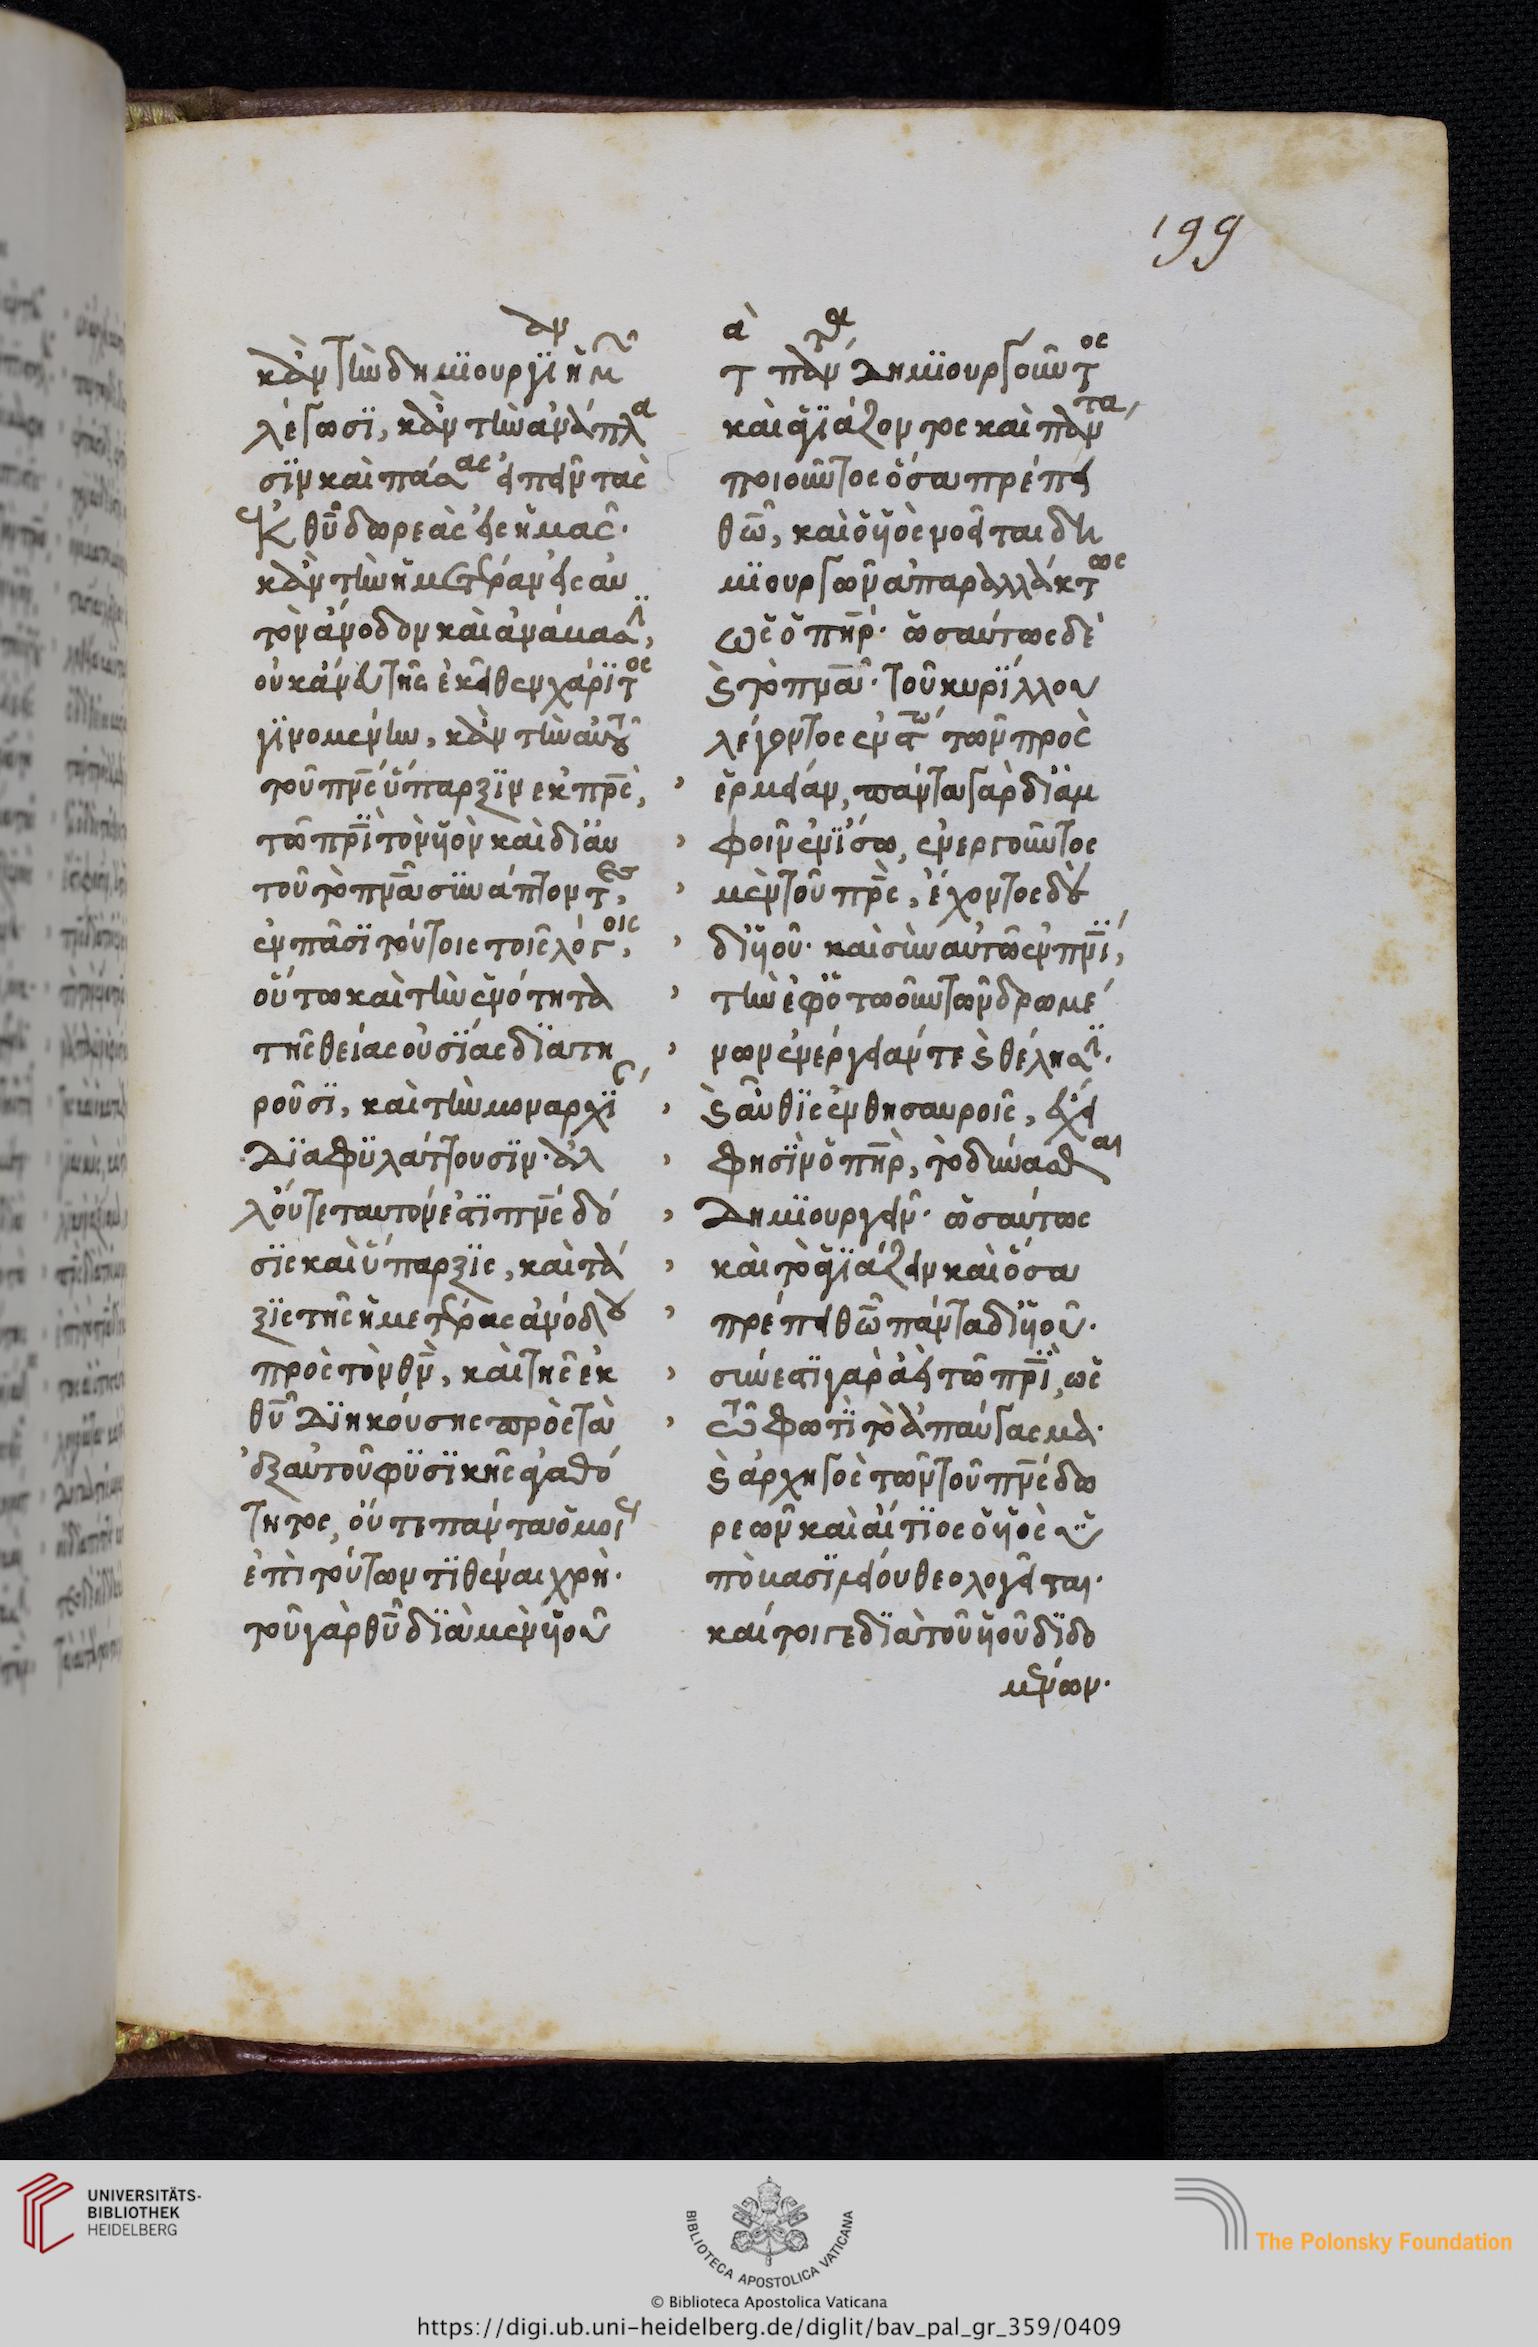 199
κἂν τὴν δημιουργίαν ἡμῶν
λέγωσι, κἂν τὴν ἀνάπλα
σιν καὶ πάσας εἰπεῖν τὰς
ἐκ θῦ δωρεὰς εἰς ἡμᾶς·
κἂν τὴν ἡμετέραν εἰς αὐ
τὸν ἄνοδον καὶ ἀνάβασιν,
οὐκ ἄνευ τῆς ἐκεῖθεν χάριτος
γινομένην, κἂν τὴν αὐτοῦ
τοῦ πνς ὕπαρξιν ἐκ πρς,
τῶ πρι τὸν υἱὸν καὶ δι' αὐ
τοῦ τὸ πνα συνάπτοντες,
ἐν πᾶσι τούτοις τοῖς λόγοις,
οὕτω καὶ τὴν ἑνότητα
τῆς θείας οὐσίας διατη
ροῦσι, καὶ τὴν μοναρχίαν
διαφυλάττουσιν· ἀλ
λ' οὔτε ταυτόν ἐστι πνς δό
σις καὶ ὕπαρξις, καὶ τά
ξις τῆς ἡμετέρας ἀνόδου
πρὸς τὸν θν, καὶ τῆς ἐκ
θῦ διηκούσης πρὸς τὰ
ἐξ αὐτοῦ φυσικῆς ἀγαθό
τητος, οὔτε πάντα ὁμοίως
ἐπὶ τούτων τιθέναι χρή·
τοῦ γὰρ θῦ διὰ μὲν υἱοῦ
τὰ πάντα δημιουργοῦντος
καὶ ἁγιάζοντος καὶ πάντα
ποιοῦντος ὅσα πρέπει
θῶ, καὶ ὁ υἱὸς νοεῖται δη
μιουργῶν ἀπαραλλάκτως
ὡς ὁ πηρ· ὡσαύτως δὲ
καὶ τὸ πνα· τοῦ κυρίλλου
λέγοντος ἐν τῶ τῶν πρὸς
ἑρμείαν, πάντα γὰρ δι' ἀμ
φοῖν ἐν ἴσω, ἐνεργοῦντος
μὲν τοῦ πρς, ἔχοντος δὲ
δι' υἱοῦ· καὶ σὺν αὐτῶ ἐν πνι,
τὴν ἐφ' ὁτωοῦν τῶν δρωμέ
νων ἐνέργειάν τε καὶ θέλησιν.
καὶ αὖθις ἐν θησαυροῖς, ἔχει
φησὶν ὁ πηρ, τὸ δύνασθαι
δημιουργεῖν· ὡσαύτως
καὶ τὸ ἁγιάζειν καὶ ὅσα
πρέπει θῶ πάντα δι' υἱοῦ.
σύνεστι γὰρ ἀεὶ τῶ πρι, ὡς
τῶ φωτὶ τὸ ἀπαύγασμα.
καὶ ἀρχηγὸς τῶν τοῦ πνς δω
ρεῶν καὶ αἴτιος ὁ υἱὸς ὑ
πὸ βασιλείου θεολογεῖται.
καίτοι γε διὰ τοῦ υἱοῦ διδο
μένων.
UNIVERSITÄTS-
BIBLIOTHEK
HEIDELBERG
BIBLIOTECA APOSTOLICA VATICANA
The Polonsky Foundation
© Biblioteca Apostolica Vaticana
https://digi.ub.uni-heidelberg.de/diglit/bav_pal_gr_359/0409